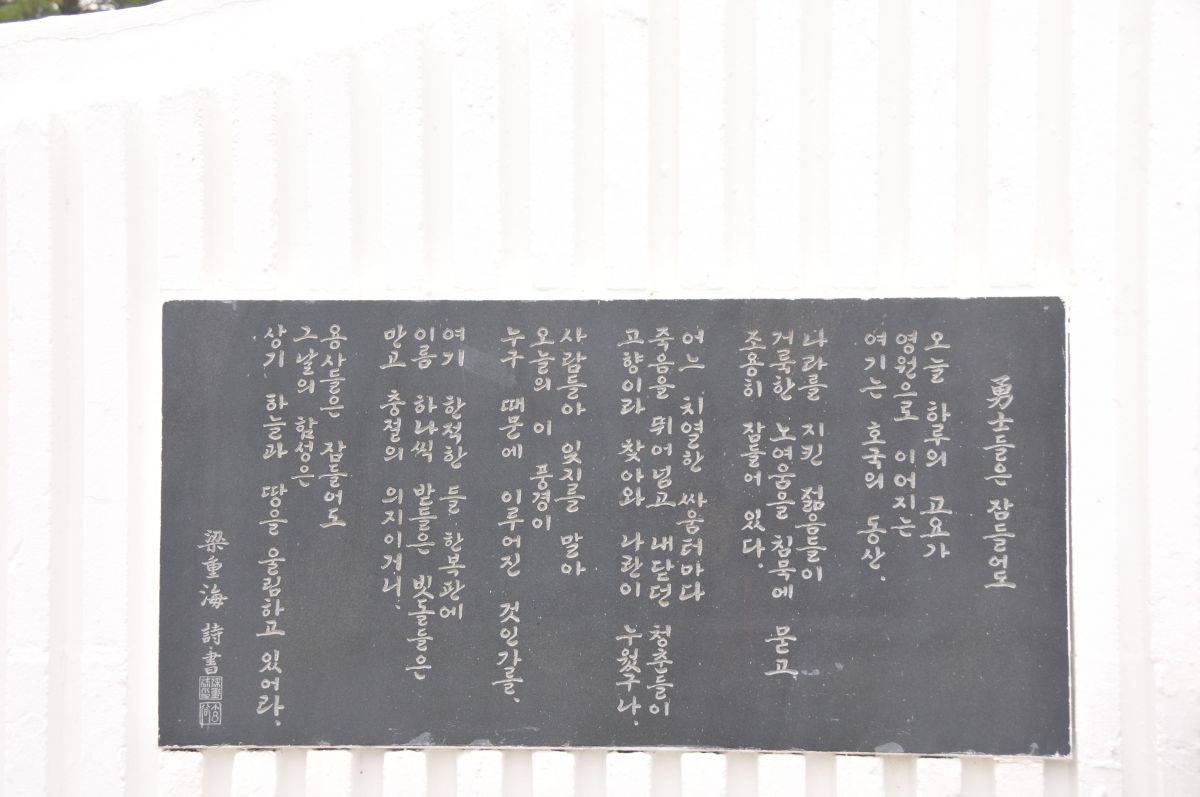 勇士들은 잠들어도
오늘 하루의 고요가
영원으로 이어지는
여기는 호국의 동산.
나라를 지킨 젊음들이
거룩한 노여움을 침묵에 묻고
조용히 잠들어 있다.
어느 치열한 싸움터마다
죽음을 뛰어넘고 내닫던 청춘들이
고향이라 찾아와 나란이 누웠구나.
사람들아 잊지를 말아
오늘의 이 풍경이
누구 때문에 이루어진 것인가를.
여기 한적한 들 한복판에
이름 하나씩 받들은 빗돌들은
만고 충절의 의지이거니.
용사들은 잠들어도
그날의 함성은
상기 하늘과 땅을 울림하고 있어라.
梁重海 詩書